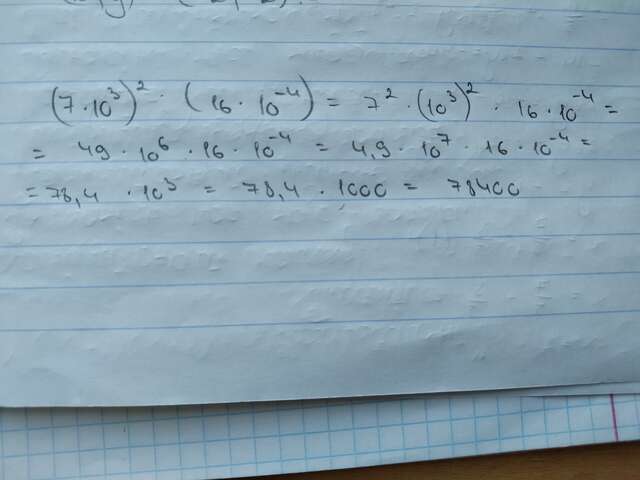 (7·10³)² · (16·10⁻⁴) = 7² · (10³)² · 16·10⁻⁴ =
= 49 · 10⁶ · 16 · 10⁻⁴ = 4,9 · 10⁷ · 16 · 10⁻⁴ =
= 78,4 · 10³ = 78,4 · 1000 = 78400